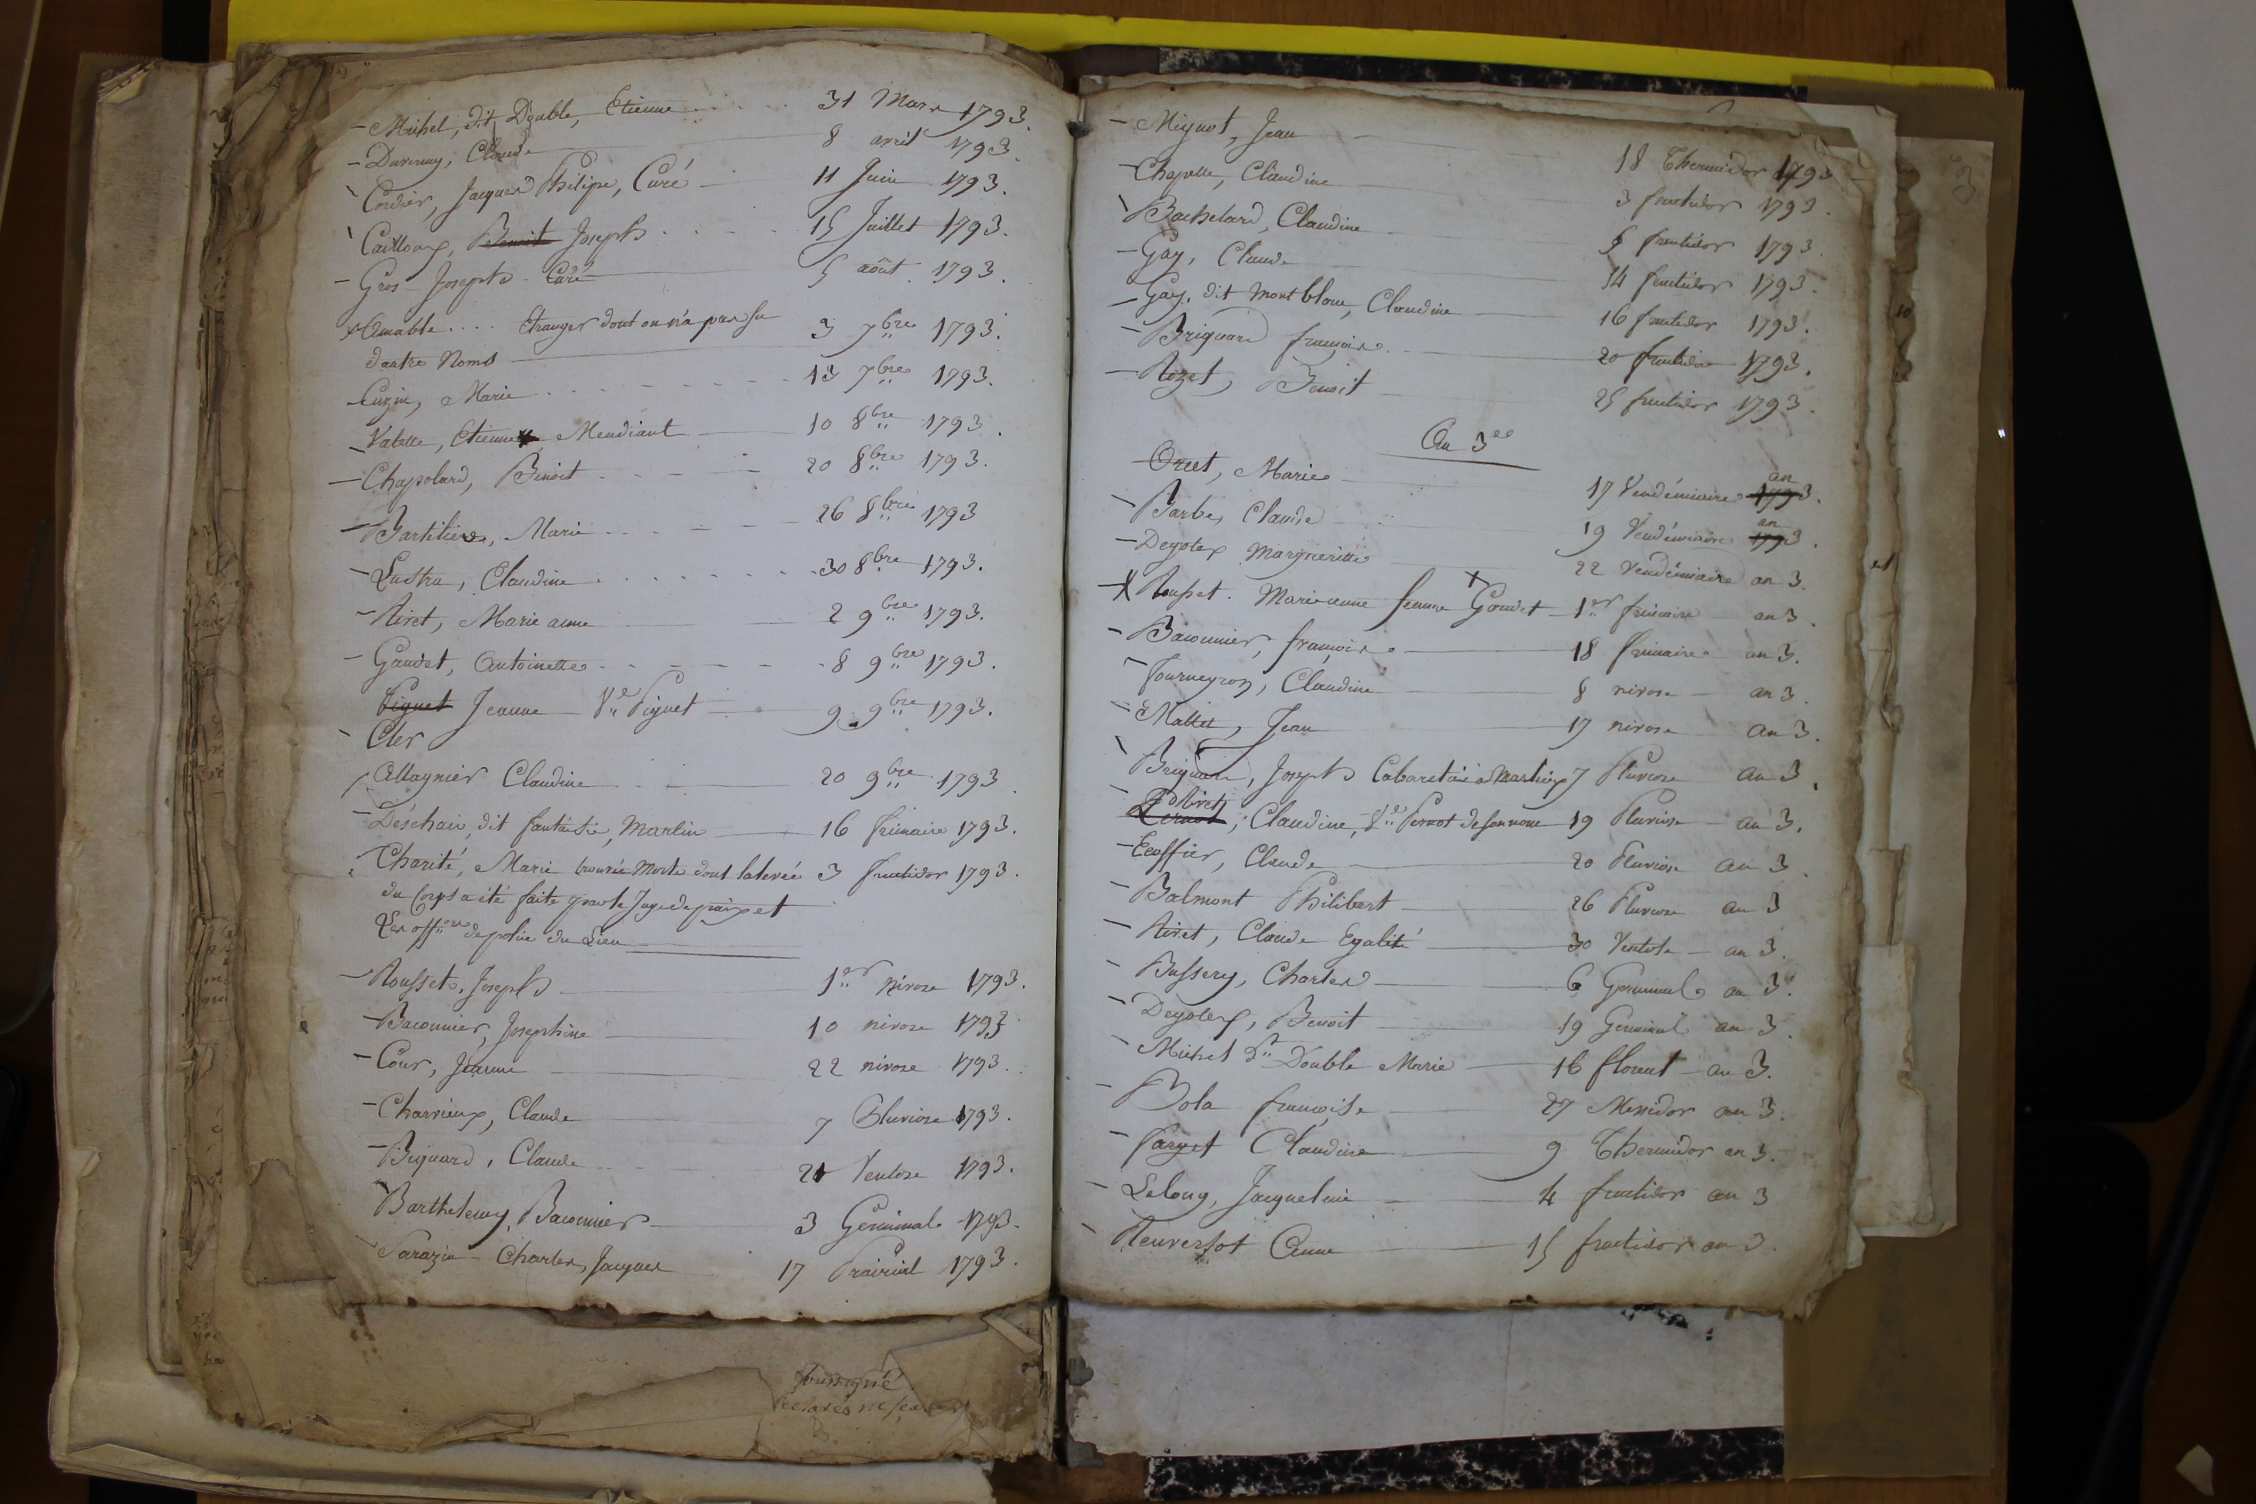 Michel, dit Double, Etienne 31 Mars 1793.
Duvernay, Claude 8 avril 1793.
Cordier, Jacques Philipe, Curé 11 Juin 1793.
Cailloux, Benoit Joseph 15 Juillet 1793.
Gros Joseph Curé 5 août 1793.
Amable .... Etranger dont on n'a pas su 3 7bre 1793.
dautre Noms
Cuzin, Marie 13 7bre 1793.
Valette, Etienne Mendiant 10 8bre 1793.
Chapolard, Benoit 20 8bre 1793.
Marie 26 8bre 1793
Lustra, Claudine 30 8bre 1793.
Airet, Marie anne 2 9bre 1793.
Gaudet, Antoinette 8 9bre 1793.
Piguet Jeanne Ve Piguet 9 9bre 1793.
Cler
Allagnier Claudine 20 9bre 1793.
Deschain, dit fantaisie, Martin 16 frimaire 1793.
Charité, Marie trouvée Morte dont la levée 3 fructidor 1793.
du Corps a été faite par le Juge de paix et
Les offers de police du Lieu
Rousset, Joseph 1er nivose 1793.
Baconnier, Josephine 10 nivose 1793
Cour, Jeanne 22 nivose 1793.
Charvieux, Claude 7 Pluviose 1793.
Biguard, Claude 21 Ventose 1793.
Barthelemy, Baconnier 3 Germinal 1793.
Sarazin Charles, Jacques 17 Prairial 1793.
Mignot, Jean 18 Thermidor 1793
Chapelle, Claudine 3 fructidor 1793.
Bachelard, Claudine 5 fructidor 1793.
Gay, Claude 14 fructidor 1793.
Gay, dit Montblanc, Claudine 16 fructidor 1793.
Briguard françoise 20 fructidor 1793.
Rozet, Benoit 25 fructidor 1793.
An 3ee
Orset, Marie 17 Vendémiaire 1793. an
Barbe, Claude 19 Vendémiaire 1793. an
Degolex Margueritte 22 Vendémiaire an 3.
Rousset. Marie anne femme Goudet 1er frimaire an 3.
Baconnier, françoise 18 frimaire an 3.
Fourneyron, Claudine 8 nivose an 3.
Mallet, Jean 17 nivose an 3.
Joseph Cabaretier à 7 Pluviose an 3.
Claudine, Ve Pernot de son nom 19 Pluviose an 3.
Ecoffier, Claude 20 Pluviose an 3.
Balmont Philibert 26 Pluviose an 3
Airet, Claude Egalité 30 Ventose an 3.
Bussery, Charles 6 Germinal an 3.
Degolex, Benoit 19 Germinal an 3.
Michel dt Double Marie 16 floreal an 3.
Bola françoise 27 Messidor an 3.
Farget Claudine 9 Thermidor an 3.
Lelong, Jacqueline 4 fructidor an 3
Neuversot Anne 15 fructidor an 3.